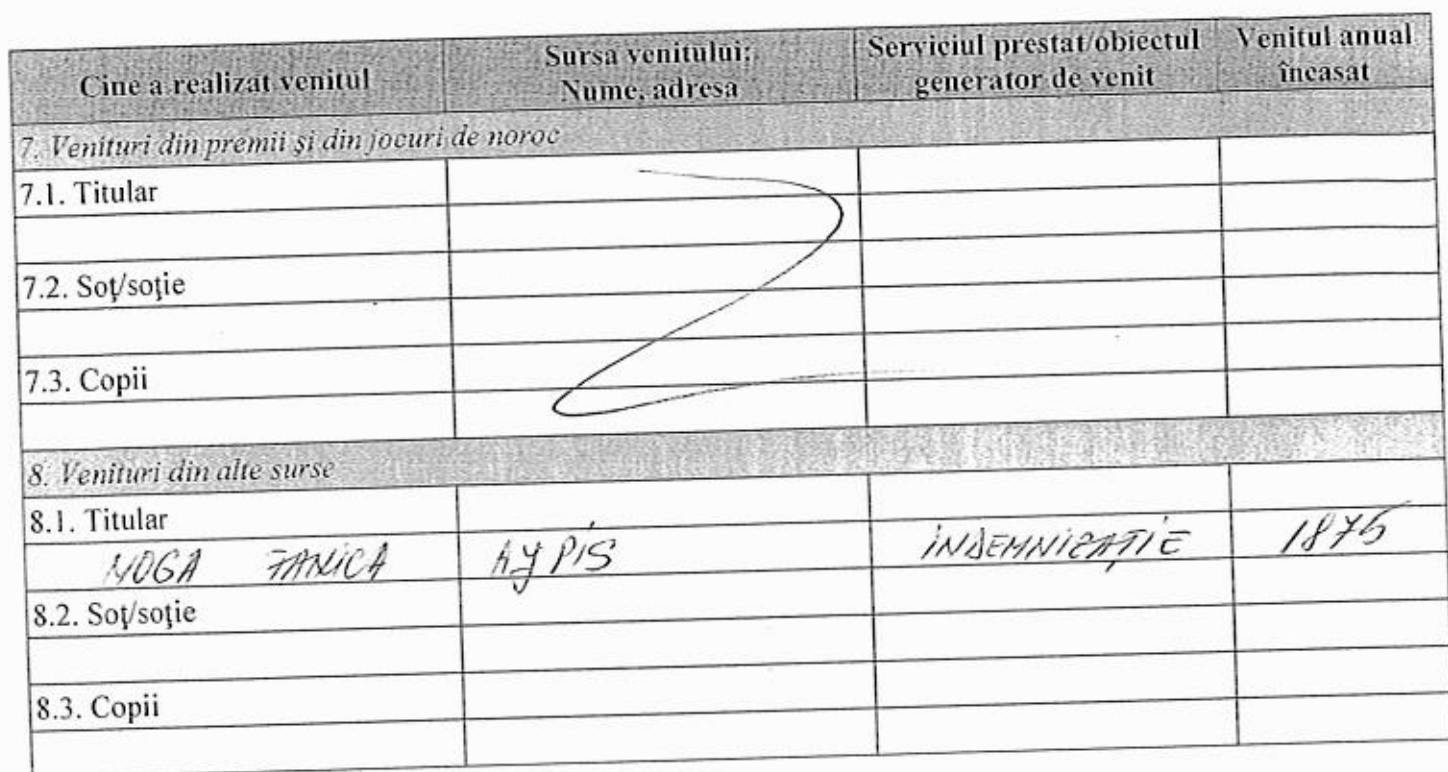 Cine a realizat venitul | Sursa venitului: Nume, adresa | Serviciul prestat/obiectul generator de venit | Venitul anual încasat
7. Venituri din premii şi din jocuri de noroc
7.1. Titular
7.2. Soţ/soţie
7.3. Copii
8. Venituri din alte surse
8.1. Titular
NOGA FANICA | AJPIS | INDEMNIZAŢIE | 1875
8.2. Soţ/soţie
8.3. Copii